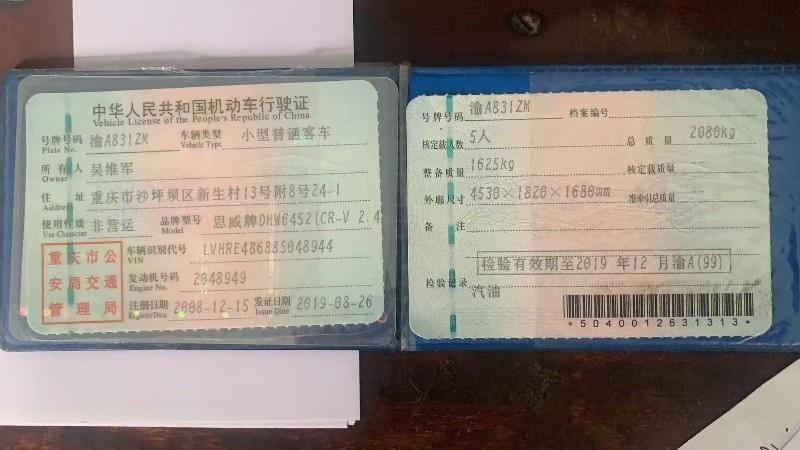 中华人民共和国机动车行驶证
Vehicle License of the People's Republic of China
号牌号码 渝A831ZM 车辆类型 小型普通客车
Plate No. Vehicle Type
所有人 吴维军
Owner
住址 重庆市沙坪坝区新生村13号附8号24-1
Address
使用性质 非营运 品牌型号 思威牌DHW6452(CR-V 2.4
Use Character Model
重庆市公
安局交通
管理局
车辆识别代号 LVHRE486885048944
VIN
发动机号码 2048949
Engine No.
注册日期 2008-12-15 发证日期 2019-08-26
Register Date Issue Date
号牌号码 渝A831ZM 档案编号
核定载人数 5人 总质量 2080kg
整备质量 1625kg 核定载质量 --
外廓尺寸 4530×1820×1680mm 准牵引总质量 --
备注
检验有效期至2019年12月渝A(99)
检验记录
汽油
*5040012631313*